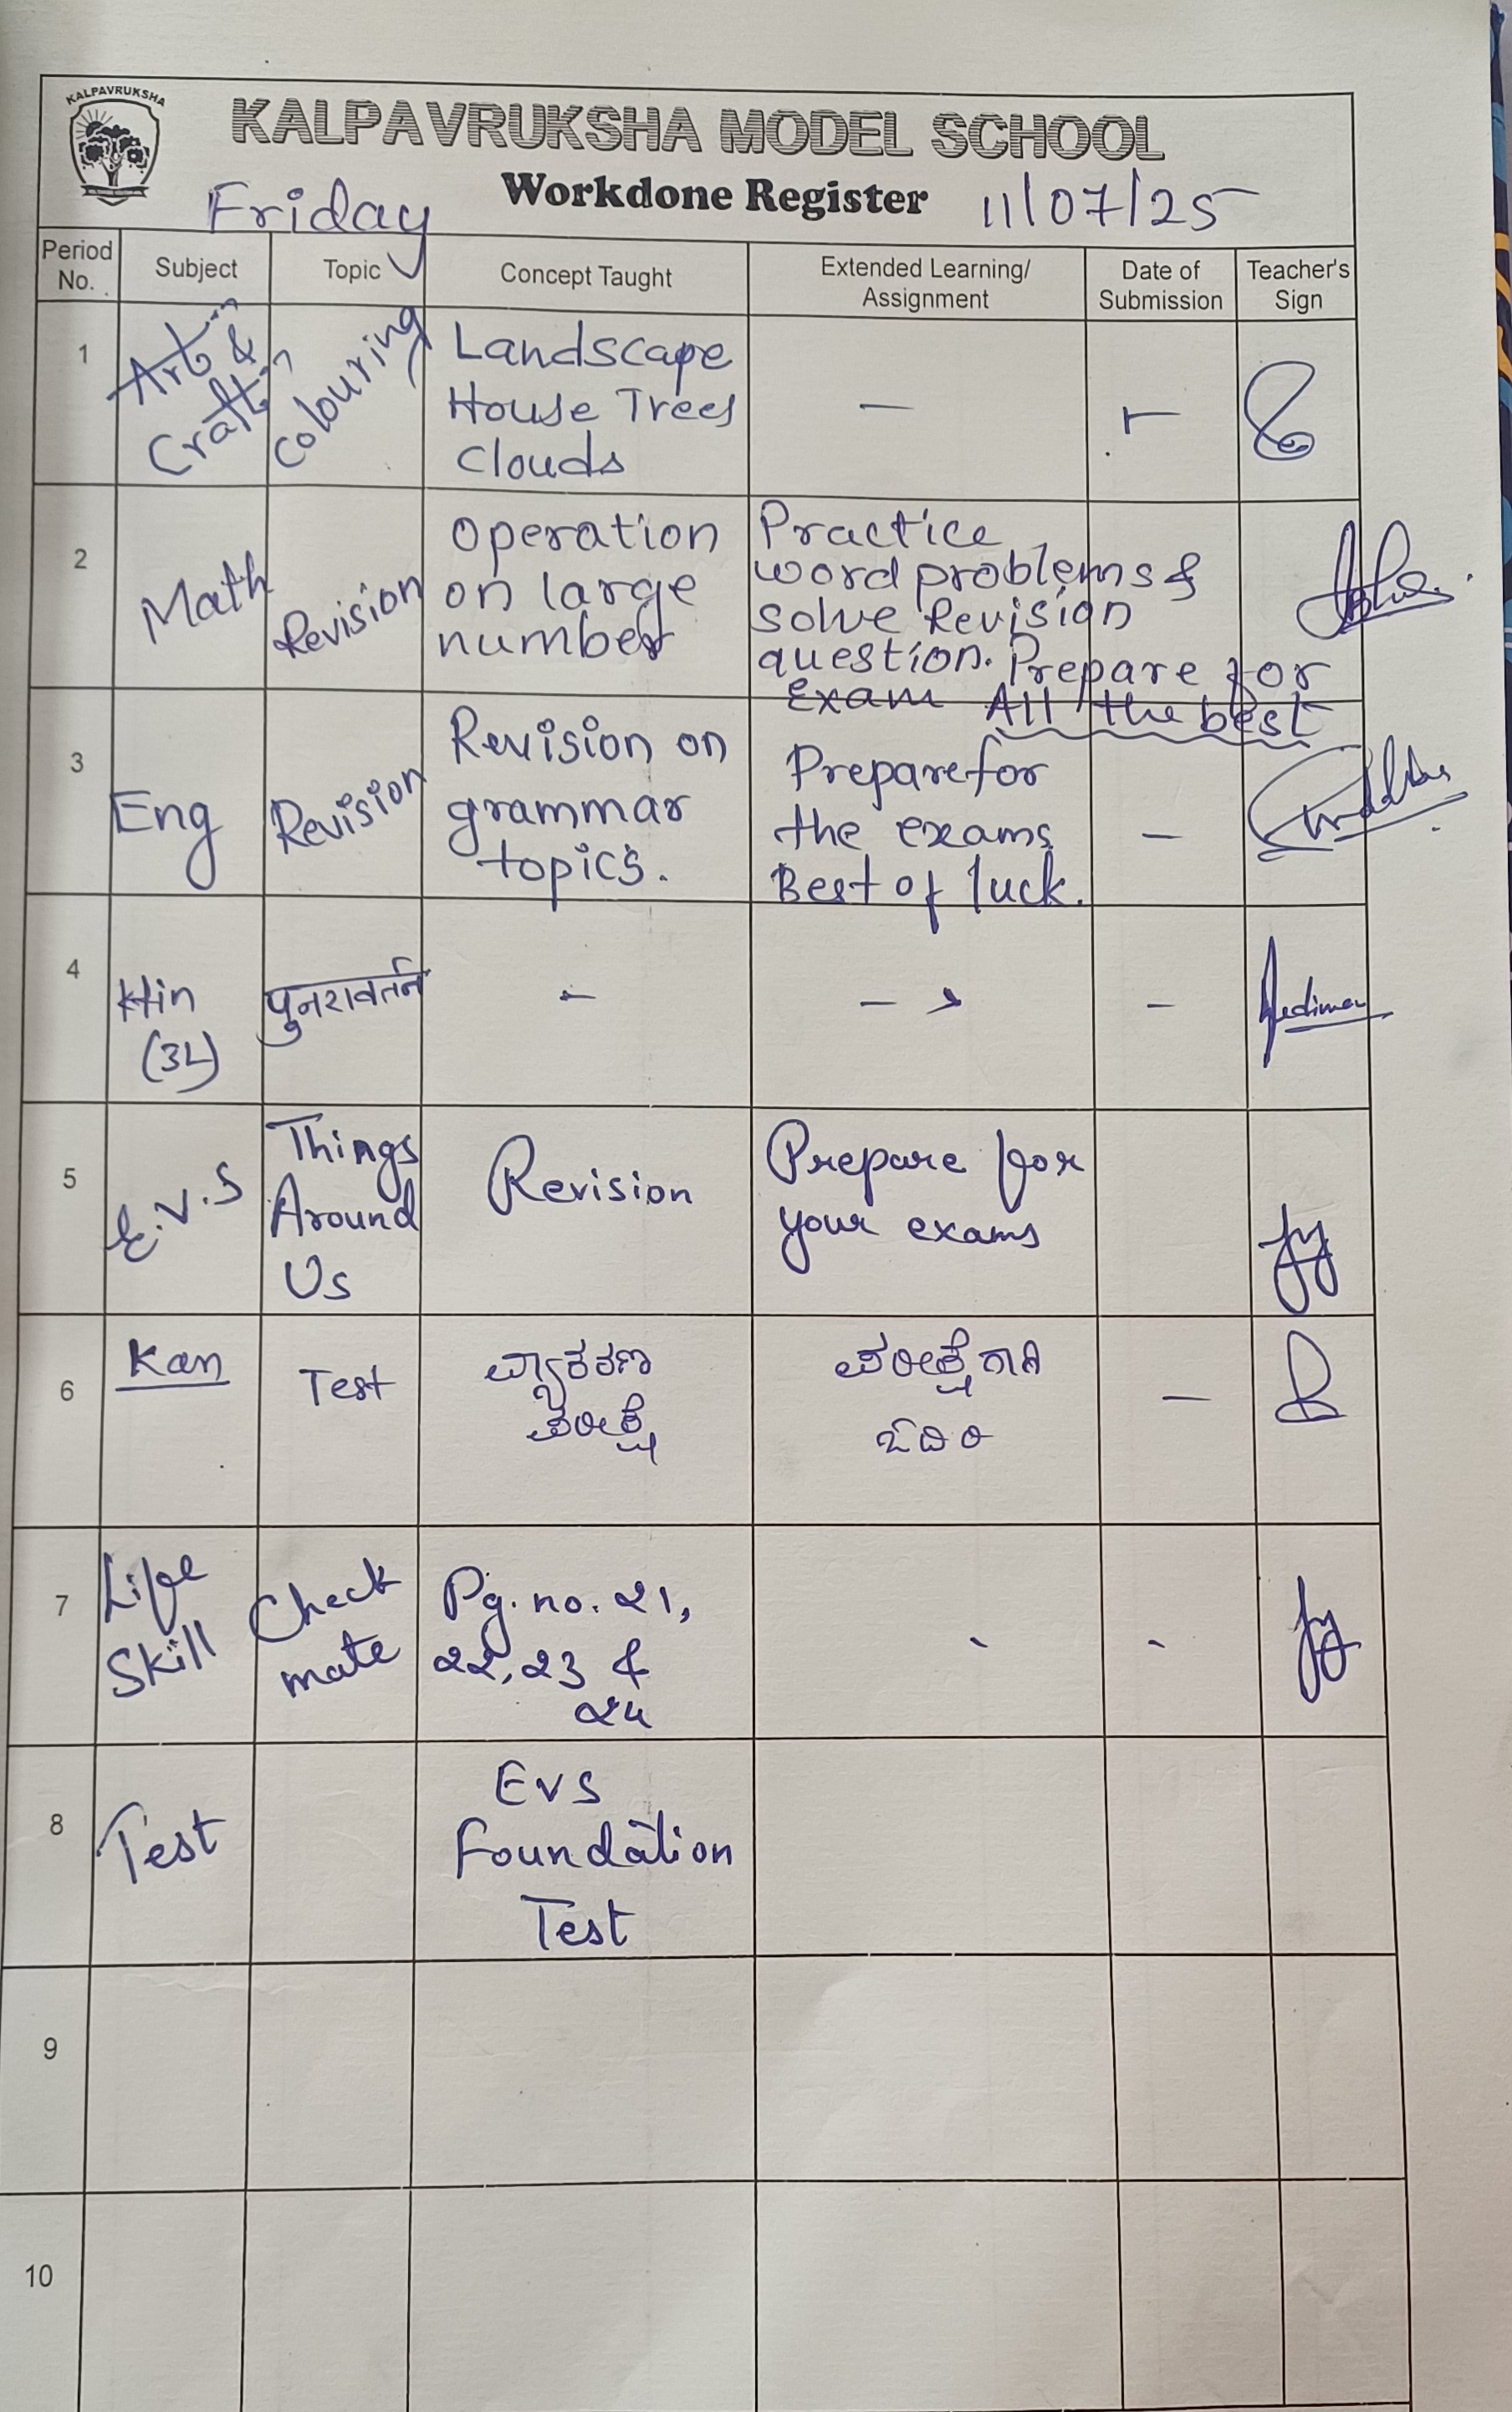 KALPAVRUKSHA
KALPAVRUKSHA MODEL SCHOOL
Workdone Register
Friday
11/07/25
Period No.
Subject
Topic
Concept Taught
Extended Learning/
Assignment
Date of
Submission
Teacher's
Sign
1
Art &
Craft
Colouring
Landscape
House Trees
Clouds
—
—
2
Math
Revision
Operation
on large
number
Practice
word problems &
solve Revision
question. Prepare for
Exam All the best
3
Eng
Revision
Revision on
grammar
topics.
Prepare for
the exams
Best of luck.
—
4
Hin
(3L)
पुनरावर्तन
—
—
—
5
E.V.S
Things
Around
Us
Revision
Prepare for
your exams
6
Kan
Test
ವ್ಯಾಕರಣ
ಪರೀಕ್ಷೆ
ಪರೀಕ್ಷೆಗಾಗಿ
ಓದಿರಿ
—
7
Life
Skill
Check
mate
Pg. no. 21,
22, 23 &
24
8
Test
EVS
Foundation
Test
9
10